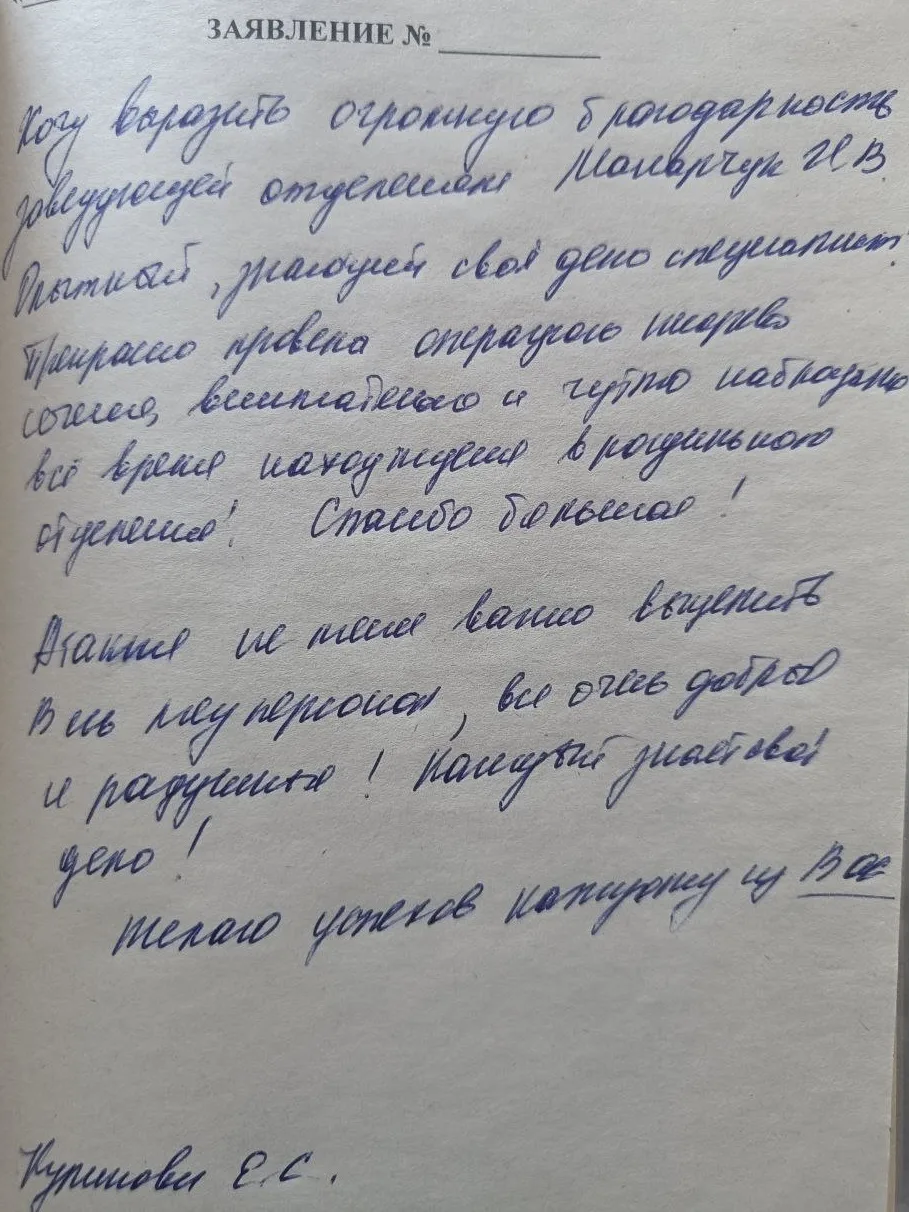 ЗАЯВЛЕНИЕ №
Хочу выразить огромную благодарность
заведующей отделением Макарчук И В
Опытный, знающий своё дело специалист!
Прекрасно провела операцию кесарево
сечение, внимательно и чутко наблюдала
всё время нахождения в родильного
отделения! Спасибо большое!
А также не менее важно выделить
Весь медперсонал, все очень добрые
и радушные! Каждый знает своё
дело!
Желаю успехов каждому из Вас
Е.С.